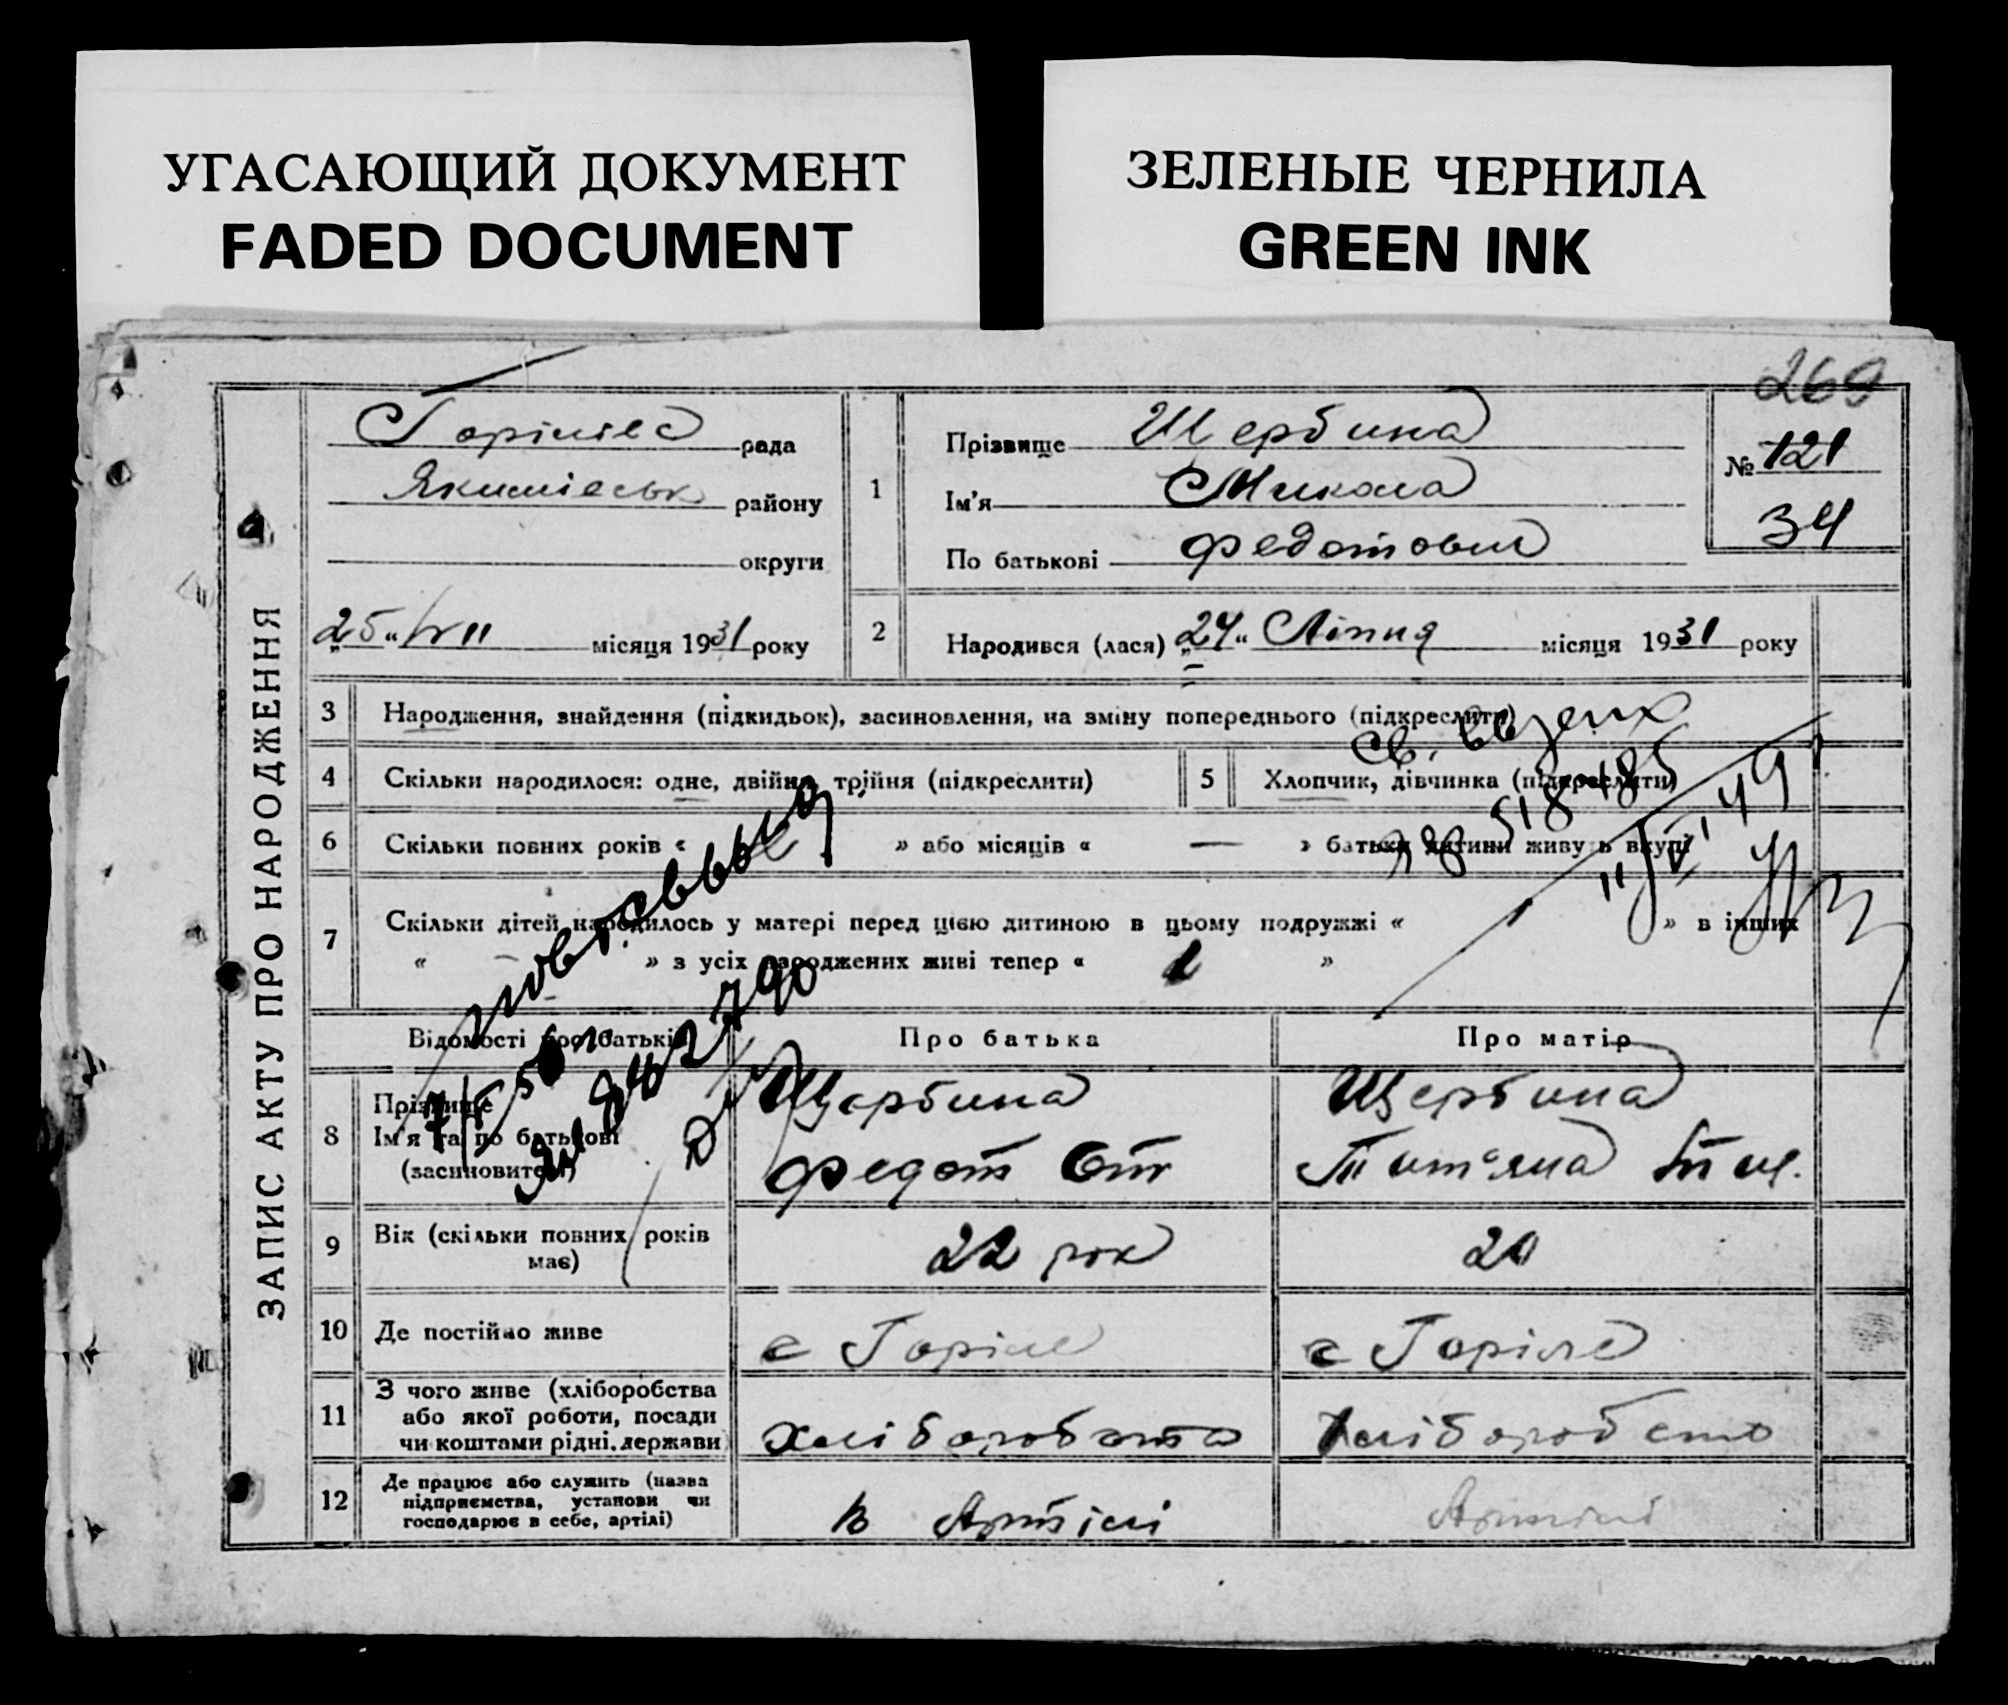 УГАСАЮЩИЙ ДОКУМЕНТ
FADED DOCUMENT
ЗЕЛЕНЫЕ ЧЕРНИЛА
GREEN INK
269
ЗАПИС АКТУ ПРО НАРОДЖЕННЯ
Горілівс рада
Якимівськ району
округи
„25“ VII місяця 1931 року
1
Прізвище Щербина
Ім'я Микола
По батькові Федотович
№ 121
34
2 Народився (лася) „24“ Липня місяця 1931 року
3 Народження, знайдення (підкидьок), засиновлення, на зміну попереднього (підкреслити)
4 Скільки народилося: одне, двійня, трійня (підкреслити)
5 Хлопчик, дівчинка (підкреслити)
6 Скільки повних років « » або місяців « — » батьки дитини живуть вкупі
7 Скільки дітей народилось у матері перед цією дитиною в цьому подружжі « » в інших
« — » з усіх народжених живі тепер « 1 »
Відомості про батьків
Про батька
Про матір
8 Прізвище
Ім'я та по батькові
(засиновителі)
Щербина
Федот
Щербина
9 Вік (скільки повних років
має)
22 рок
20
10 Де постійно живе
с Горіле
с Горіле
11 З чого живе (хліборобства
або якої роботи, посади
чи коштами рідні, держави
хліборобство
хліборобство
12 Де працює або служить (назва
підприємства, установи чи
господарює в себе, артілі)
в Артілі
Артілі